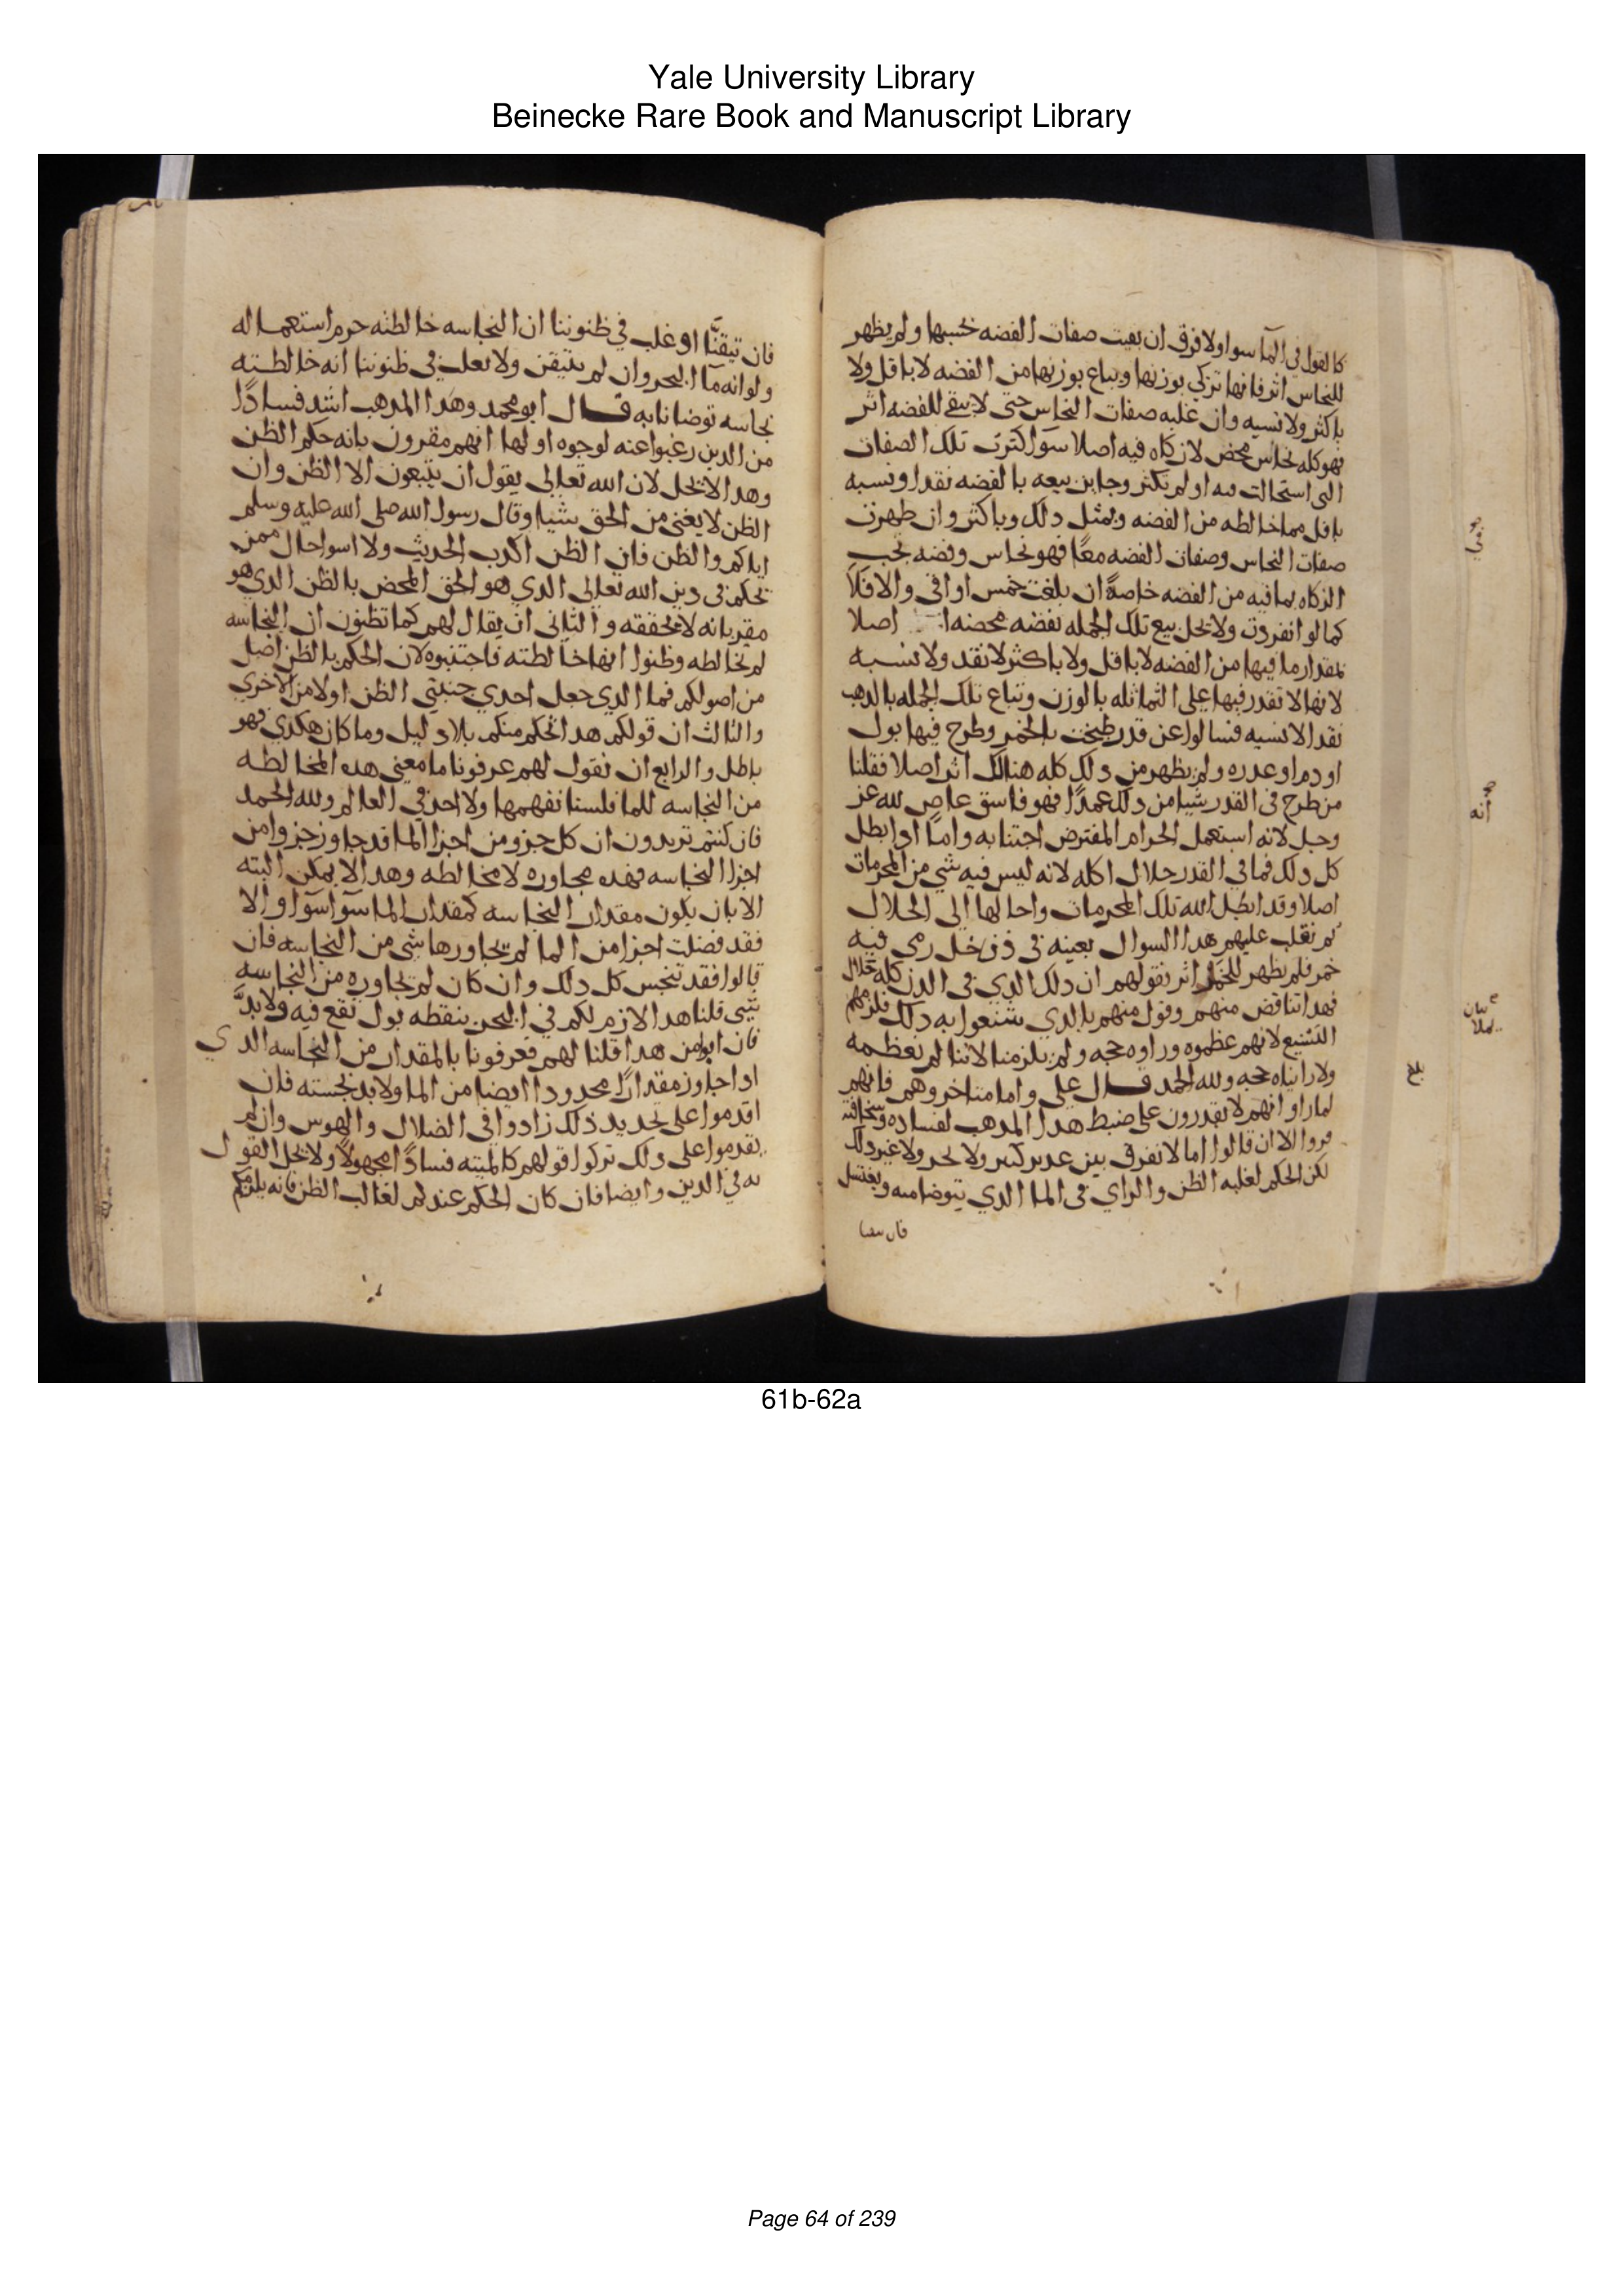 Yale University Library
Beinecke Rare Book and Manuscript Library
كالقول في المآ سوا ولا فرق ان بقيت صفات الفضه بحسبها ولم يظهر
للنحاس اثر فانها تزكي بوزنها وتباع بوزنها من الفضه لا باقل ولا
باكثر ولا نسيه وان غلبه صفات النحاس حتى لا يبقى للفضه اثر
فهو كله نحاس محض لا زكاه فيه اصلا سوا كثرت تلك الصفات
التي استحالت فيه او لم تكثر وجايز بيعه بالفضه نقدا ونسيه
باقل مما خالطه من الفضه وبمثل دلك وباكثر وان ظهرت
صفات النحاس وصفات الفضه معًا فهو نحاس وفضه تجب
الزكاه بما فيه من الفضه خاصةً ان بلغت خمس اواقي والا فلا
كما لو انفردت ولا يحل بيع تلك الجمله بفضه محضه اصلا
بمقدار ما فيها من الفضه لا باقل ولا باكثر لا نقد ولا نسيه
لانها لا نقدر فيها على التماثله بالوزن وتباع تلك الجمله بالدهب
نقد الا نسيه فسالوا عن قدر طبخت بالخمر وطرح فيها بول
او دم او عدره ولم يظهر من دلك كله هنالك اثر اصلا فقلنا
من طرح في القدر شيا من دلك عمدًا فهو فاسق عاص لله عز
وجل لانه استعمل الحرام المفترض اجتنابه واما ادا بطل
كل دلك فما في القدر حلال اكله لانه ليس فيه شي من المحرمات
اصلا وقد ابطل الله تلك المحرمات واحالها الى الحلال
ثم نقلب عليهم هدا السوال بعينه في دن خل رمي فيه
خمر فلم يظهر للخمر اثر بقولهم ان دلك الدي في الدن كله حلال
فهدا تناقض منهم وقول منهم بالدي شنعوا به دلك فلزمهم
التشنيع لانهم عظموه وراوه حجه ولم يلزمنا لاننا لم نعظمه
ولا رايناه حجه ولله الحمد قال علي واما متاخروهم فانهم
لما راوا انهم لا يقدرون على ضبط هدا المدهب لفساده وسخافته
فروا الا ان قالوا اما لا نفرق بين غدير كبير ولا بحر ولا غير دلك
لكن الحكم لغلبه الظن والراي في الما الدي يتوضا منه ويغتسل
بلغ
فان تيقنَّا او غلب في ظنوننا ان النجاسه خالطته حرم استعماله
ولو انه مآ البحر وان لم يتيقن ولا يغلب في ظنوننا انه خالطته
نجاسه توضانا به قال ابو محمد وهدا المدهب اشد فسادًا
من الدين رغبوا عنه لوجوه اولها انهم مقرون بانه حكم الظن
وهدا لا يحل لان الله تعالى يقول ان يتبعون الا الظن وان
الظن لا يغني من الحق شيا وقال رسول الله صلى الله عليه وسلم
اياكم والظن فان الظن اكدب الحديث ولا اسوا حال ممن
يحكم في دين الله تعالى الدي هو الحق المحض بالظن الدي هو
مقر بانه لا يحققه والثاني ان يقال لهم كما تظنون ان النجاسه
لم تخالطه وظنوا انها خالطته فاجتنبوه لان الحكم بالظن اصل
من اصولكم فما الدي جعل احدي جنبتي الظن اولا من الاخري
والثالث ان قولكم هدا تحكم منكم بلا دليل وما كان هكدي فهو
باطل والرابع ان نقول لهم عرفونا ما معنى هده المخالطه
من النجاسه للما فلسنا نفهمها ولا احد في العالم ولله الحمد
فان كنتم تريدون ان كل جزو من اجزا الما قد جاوز جزوا من
اجزا النجاسه فهده مجاوره لا مخالطه وهدا لا يمكن البته
الا بان يكون مقدار النجاسه كمقدار الما سوآ سوآ والا
فقد فضلت اجزا من الما لم يجاورها شي من النجاسه فان
قالوا فقد تنجس كل دلك وان كان لم تجاوره من النجاسه
شي قلنا هدا لازم لكم في البحر بنقطه بول تقع فيه ولا بدَّ
فان ابوا من هدا قلنا لهم فعرفونا بالمقدار من النجاسه الدي
ادا جاوز مقدارًا محدودا ايضا من الما ولا بد نجسته فان
اقدموا على تحديد ذلك زادوا في الضلال والهوس وان لم
يقدموا على دلك تركوا قولهم كالميته فسادًا مجهولًا ولا يحل القول
به في الدين وايضا فان كان الحكم عندكم لغالب الظن فانه يلزمكم
61b-62a
Page 64 of 239